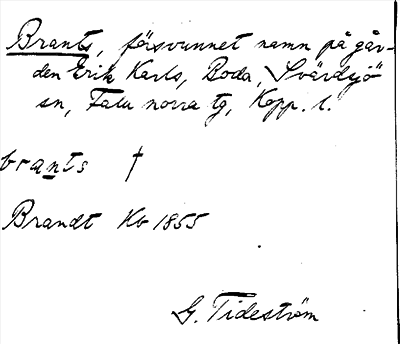 Brants, försvunnet namn på går-
den Erik Karls, Boda, Svärdsjö
sn, Falu norra tg, Kopp. l.
brants †
Brandt Kb 1855
G. Tideström